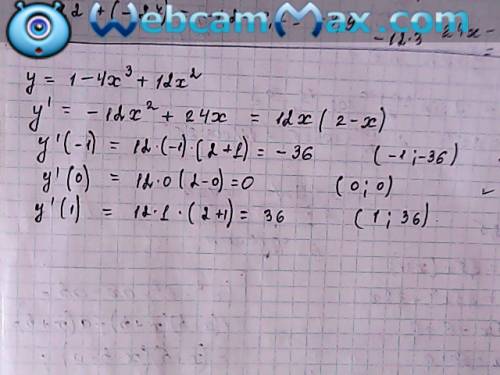 Webcam Max.com
-12·3 24x -
y = 1-4x³+12x²
y' = -12x² + 24x = 12x(2-x)
y'(-1) = 12·(-1)·(2+1) = -36 (-1;-36)
y'(0) = 12·0(2-0)=0 (0;0)
y'(1) = 12·1·(2+1)= 36 (1;36).